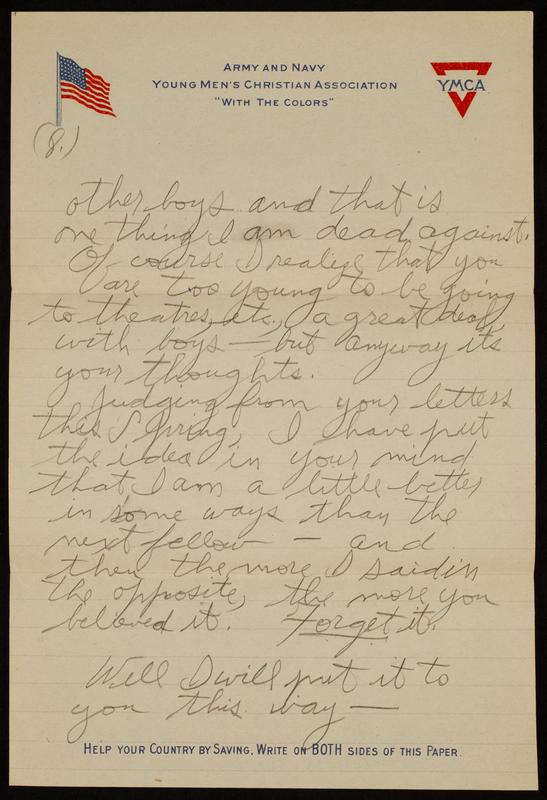 ARMY AND NAVY
YOUNG MEN'S CHRISTIAN ASSOCIATION
"WITH THE COLORS"
YMCA
(8.)
other boys and that is
one thing I am dead against.
Of course I realize that you
are too young to be going
to theatres, etc., a great deal,
with boys — but anyway its
your thoughts.
Judging from your letters
this Spring, I have put
the idea in your mind
that I am a little better
in some ways than the
next fellow — and
then the more I said in
the opposite, the more you
believed it. Forget it.
Well I will put it to
you this way —
HELP YOUR COUNTRY BY SAVING. WRITE ON BOTH SIDES OF THIS PAPER.